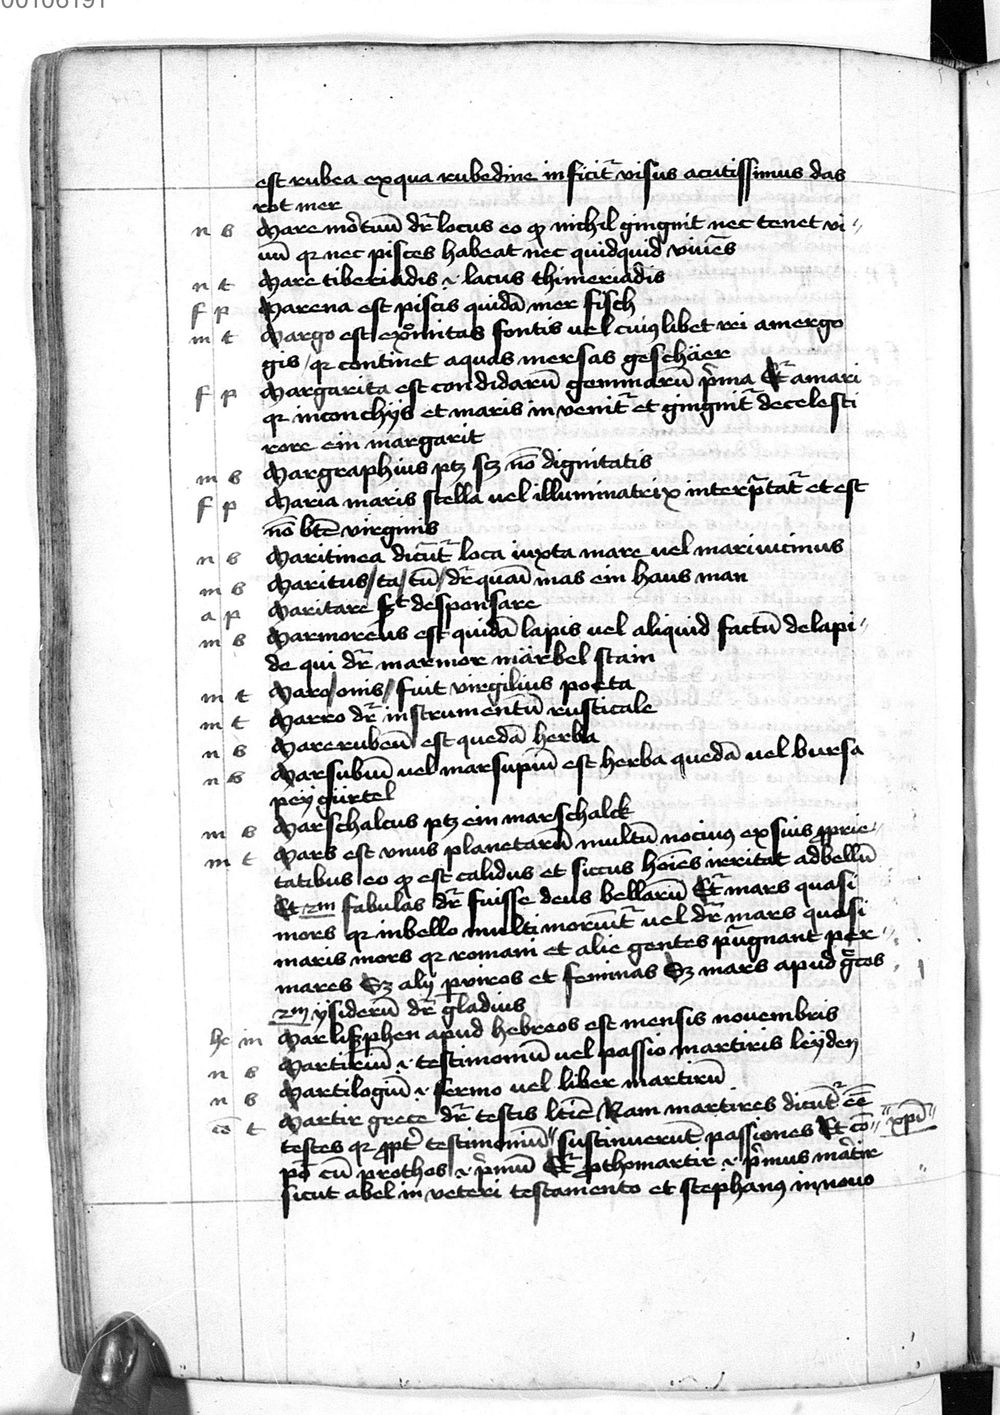 00106191
est rubea ex qua rubedine inficit᷑ visus acutissimus das
rot mer
n b Mare mortuū dr̄ locus eo ꝙ nichil gingnit nec tenet vi〃
uū qꝛ nec pisces habeat nec quidquid viuēs
n t Mare tiberiadis .i. lacus thimeriadis
f p Marena est piscis quidā mer fisch
m t Margo est ext̾mitas fontis uel cuiꝯ libet rei a mergo
gis / qꝛ continet aquas mersas geschäer
f p Margarita est condidarū gemmarū p̾ma Et᷑ a mari
qꝛ in conchijs et maris in venit᷑ et gingnit᷑ de celesti
rore ein margarit
m b Margraphius ptꝫ sꝫ nō dignitatis
f p Maria maris stella uel illuminatrix interp̄tat᷑ et est
nō btē virginis
n b Maritinea dicūt᷑ loca iuxta mare uel mari uicinus
m b Maritus / ta / tū / dr̄ quasi mas ein haus man
a p Maritare sct desponsare
m b Marmoreus est quidā lapis uel aliquid factū de lapi〃
de qui dr̄ marmor märbel stain
m t Maro / onis / fuit virgilius poeta
m t Marro dr̄ instrumentū rusticale
n b Mare rubeū est quedā herba
n b Marsubiū uel marsupiū est herba quedā uel bursa
peÿ gürtel
m b Marschalcus ptꝫ ein marschalck
m t Mars est vnus planetarū multū nociuꝯ ex suis ꝓprie〃
tatibus eo ꝙ est calidus et siccus hoīes irritat ad bellū
Et 2m fabulas dr̄ fuisse deus bellarū Et᷑ mars quasi
mors qꝛ in bello multi moriūt᷑ uel dr̄ mars quasi
maris mors qꝛ romani et alie gentes pugnant per〃
mares Sꝫ alij ꝑ viros et feminas Sꝫ mars apud g̾cos
2m ysiderū dr̄ gladius
he m apud hebreos est mensis novembris
n b Martiriū .i. testimoniū uel passio martiris leÿden
n b Martilogiū .i. sermo uel liber martirū
cō t Martir grece dr̄ testis ltīe Nam martires dicūt᷑ eē
testes qꝛ ꝓpt̾ testimoniū〃 sustinuerūt passiones Et cō〃 〃xpī〃
pō cū prothos .i. p̾mū Et᷑ ꝓthomartir .i. p̾mus mart̾ir
sicut abel in veteri testamento et stephanꝯ in nouo